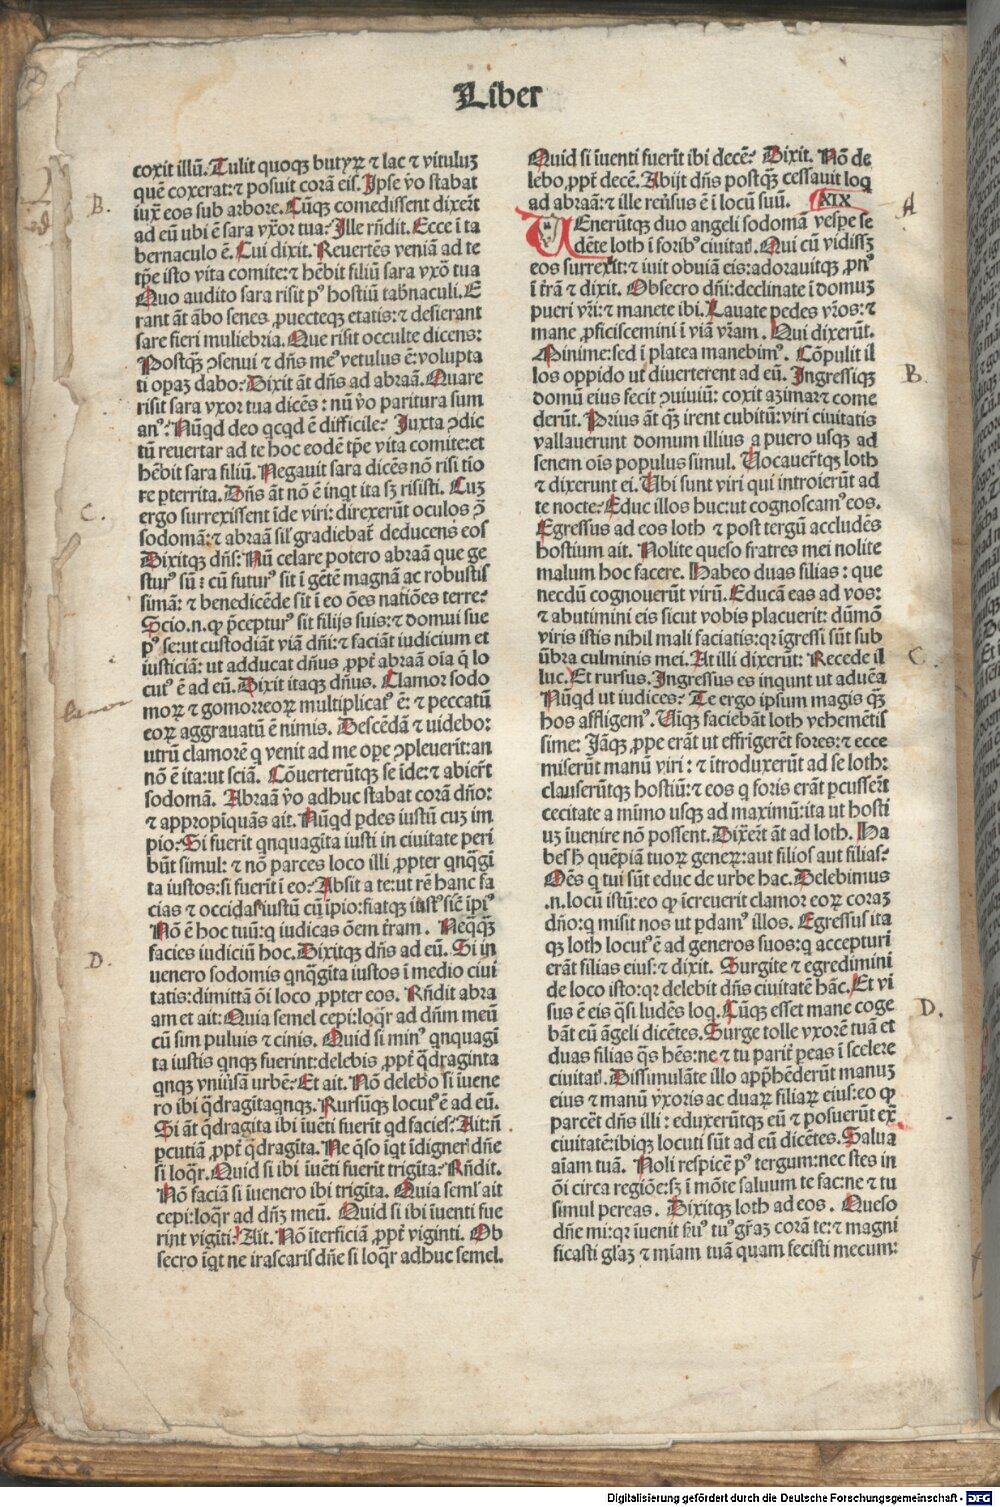 Liber
coxit illū. Tulit quoqꝫ butyꝝ ⁊ lac ⁊ vituluꝫ
quē coxerat:⁊ posuit corā eis. Ipse ꝟo stabat
iux̄ eos sub arbore. Cūqꝫ comedissent dixert̄
ad eū ubi ē sara vx̄or tua? Ille rn̄dit. Ecce ī ta
bernaculo ē. Cui dixit. Reuertēs veniā ad te
tp̄e isto vita comite:⁊ hēbit filiū sara vxō tua
Quo audito sara risit pꝰ hostiū tab̄naculi. E
rant āt ābo senes ꝓuecteqꝫ etatis: ⁊ desierant
sare fieri muliebria. Que risit occulte dicens:
Postqꝫ̄ ꝯsenui ⁊ dn̄s meꝰ vetulus ē: volupta
ti opaꝫ dabo? Dixit āt dn̄s ad abraā. Quare
risit sara vxor tua dicēs: nū ꝟo paritura sum
anꝰ? Nūqd deo qcqd ē difficile? Iuxta ꝯdic
tū reuertar ad te hoc eodē tp̄e vita comite:et
hēbit sara filiū. Negauit sara dicēs nō risi tīo
re ꝑterrita. Dn̄s āt nō ē inqt ita sꝫ risisti. Cuꝫ
ergo surrexissent īde viri: direxerūt oculos ꝯ̄
sodomā: ⁊ abraā sil̄ gradiebat̄ deducens eos
Dixitqꝫ dn̄s: Nū celare potero abraā que ge
sturꝰ sū: cū futurꝰ sit ī gētē magnā ac robustis
simā: ⁊ benedicēde sit ī eo ōes natiōes terre?
Scio.n.ꝙ p̄cepturꝰ sit filijs suis:⁊ domui sue
pꝰ se:ut custodiāt viā dn̄i:⁊ faciāt iudicium et
iusticiā: ut adducat dn̄us ꝓpt̄ abraā oīa q̄ lo
cutꝰ ē ad eū. Dixit itaqꝫ dn̄us. Clamor sodo
moꝝ ⁊ gomorreoꝝ multiplicatꝰ ē: ⁊ peccatū
eoꝝ aggrauatū ē nimis. Descēdā ⁊ uidebo:
utrū clamorē q venit ad me oꝑe ꝯpleuerit:an
nō ē ita:ut sciā. Cōuerterūtqꝫ se īde:⁊ abiert̄
sodomā. Abraā ꝟo adhuc stabat corā dn̄o:
⁊ appropīquās ait. Nūqd ꝑdes iustū cuꝫ im
pio? Si fuerit qnquagīta iusti in ciuitate peri
būt simul: ⁊ nō parces loco illi ꝓpter qnqꝫgī
ta iustos:si fuerīt ī eo? Absit a te:ut rē hanc fa
cias ⁊ occidas iustū cū īpio:fiatqꝫ iustꝰ sic̄ īpiꝰ
Nō ē hoc tuū:q iudicas ōem tr̄am. Neqꝫqꝫ̄
facies iudiciū hoc. Dixitqꝫ dn̄s ad eū. Si in
uenero sodomis qnqꝫgīta iustos ī medio ciui
tatis:dimittā ōi loco ꝓpter eos. Rn̄dit abra
am et ait: Quia semel cepi:loqr̄ ad dn̄m meū
cū sim puluis ⁊ cinis. Quid si minꝰ qnquagī
ta iustis qnqꝫ fuerint:delebis ꝓpt̄ q̄draginta
qnqꝫ vniūsā urbē? Et ait. Nō delebo si īuene
ro ibi q̄dragītaqnqꝫ. Rursūqꝫ locutꝰ ē ad eū.
Si āt q̄dragīta ibi īuēti fuerīt qd facies? Ait:n̄
ꝑcutiā ꝓpt̄ q̄dragīta. Ne q̄so īqt īdigneris dn̄e
si loqr̄. Quid si ibi īuēti fuerīt trigīta? Rn̄dit.
Nō faciā si īuenero ibi trigīta. Quia seml̄ ait
cepi:loqr̄ ad dn̄ꝫ meū. Quid si ibi īuenti fue
rīnt vigīti? Ait. Nō īterficiā ꝓpt̄ viginti. Ob
secro īqt ne irascaris dn̄e si loqr̄ adhuc semel.
Quid si īuenti fuerīt ibi decē? Dixit. Nō de
lebo ꝓpt̄ decē. Abijt dn̄s postqꝫ̄ cessauit loq
ad abraā: ⁊ ille reūsus ē ī locū suū. XIX
VEnerūtqꝫ duo angeli sodomā vesꝑe se
dēte loth ī foribꝰ ciuitatꝭ. Qui cū vidissꝫ
eos surrexit:⁊ iuit obuiā eis:adorauitqꝫ ꝓnꝰ
ī tr̄ā ⁊ dixit. Obsecro dn̄i:declinate ī domuꝫ
pueri vr̄i:⁊ manete ibi. Lauate pedes vr̄os:⁊
mane ꝓficiscemini ī viā vr̄am. Qui dixerūt.
Minime:sed ī platea manebimꝰ. Cōpulit il
los oppido ut diuerterent ad eū. Ingressiqꝫ
domū eius fecit ꝯuiuiū: coxit azima:⁊ come
derūt. Prius āt qꝫ̄ irent cubitū:viri ciuitatis
vallauerunt domum illius a puero usqꝫ ad
senem oīs populus simul. Uocauert̄qꝫ loth
⁊ dixerunt ei. Ubi sunt viri qui introierūt ad
te nocte? Educ illos huc:ut cognoscamꝰ eos.
Egressus ad eos loth ⁊ post tergū accludēs
hostium ait. Nolite queso fratres mei nolite
malum hoc facere. Habeo duas filias: que
necdū cognouerūt virū. Educā eas ad vos:
⁊ abutimini eis sicut vobis placuerit: dūmō
viris istis nihil mali faciatis:qꝛ īgressi sūt sub
ūbra culminis mei. At illi dixerūt: Recede il
luc. Et rursus. Ingressus es inqunt ut aduēa
Nūqd ut iudices? Te ergo ipsum magis qꝫ̄
hos affligemꝰ. Uiqꝫ faciebāt loth vehemētis
sime: Iāqꝫ ꝓpe erāt ut effrīgerēt fores:⁊ ecce
miserūt manū viri: ⁊ ītroduxerūt ad se loth:
clauserūtqꝫ hostiū:⁊ eos q foris erāt ꝑcusserūt
cecitate a mīmo usqꝫ ad maximū:ita ut hosti
uꝫ īuenire nō possent. Dixert̄ āt ad loth. Ha
bes h̄ quēpiā tuoꝝ generꝝ:aut filios aut filias?
Oēs q tui sūt educ de urbe hac. Delebimus
.n.locū istū:eo ꝙ īcreuerit clamor eoꝝ coraꝫ
dn̄o:q misit nos ut ꝑdamꝰ illos. Egressus ita
qꝫ loth locutꝰ ē ad generos suos:q accepturi
erāt filias eius:⁊ dixit. Surgite ⁊ egredimini
de loco isto:qꝛ delebit dn̄s ciuitatē hāc. Et vi
sus ē eis q̄si ludēs loq. Cūqꝫ esset mane coge
bāt eū āgeli dicētes. Surge tolle vxorē tuā et
duas filias q̄s hēs:ne ⁊ tu parit̄ ꝑeas ī scelere
ciuitatꝭ. Dissimulāte illo app̄hēderūt manuꝫ
eius ⁊ manū v̄xoris ac duaꝝ filiaꝝ eius:eo ꝙ
parcēt dn̄s illi: eduxerūtqꝫ eū ⁊ posuerūt ex̄
ciuitatē:ibiqꝫ locuti sūt ad eū dicētes. Salua
aīam tuā. Noli respicē pꝰ tergum:nec stes in
ōi circa regiōe:sꝫ ī mōte saluum te fac:ne ⁊ tu
simul pereas. Dixitqꝫ loth ad eos. Queso
dn̄e mi:qꝛ īuenit suꝰ tuꝰ gr̄aꝫ corā te:⁊ magni
ficasti gl̄aꝫ ⁊ mīam tuā quam fecisti mecum:
B.
C.
D.
A
B.
C.
D.
Digitalisierung gefördert durch die Deutsche Forschungsgemeinschaft - DFG